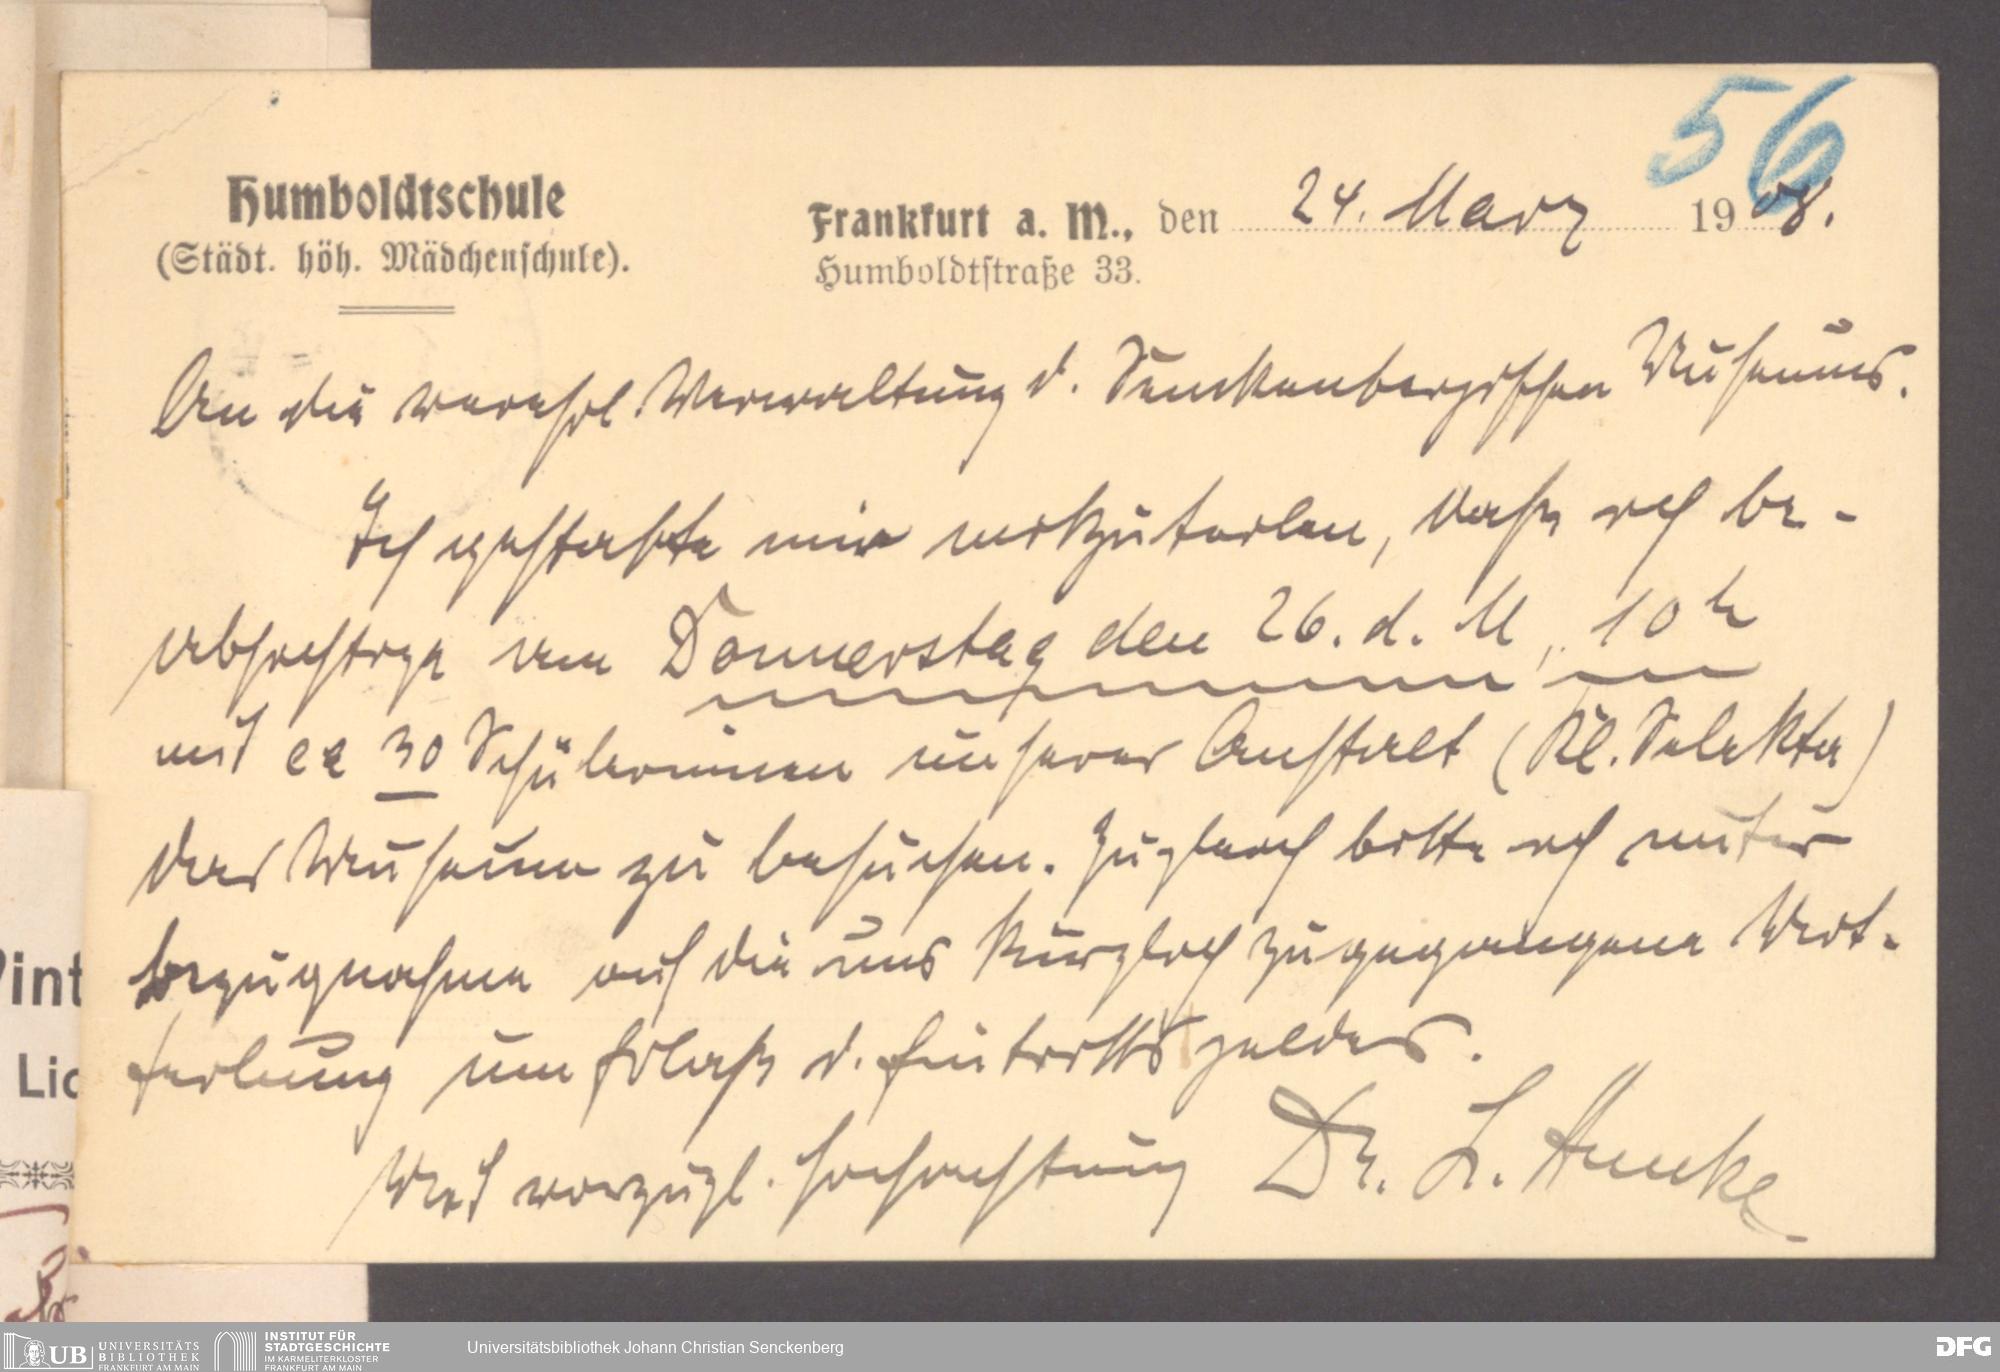 56
Humboldtschule
(Städt. höh. Mädchenschule).
Frankfurt a. M., den 24. März 1908.
Humboldtstraße 33.
An die verehrl. Verwaltung d. Senckenbergischen Museums.
Ich gestatte mir mitzuteilen, daß ich be-
absichtige am Donnerstag den 26. d. M., 10 h
mit ca 30 Schülerinnen unserer Anstalt (Kl. Selekta)
das Museum zu besuchen. Zugleich bitte ich unter
Bezugnahme auf die uns kürzlich zugegangene Mit-
teilung um Erlaß d. Eintrittsgeldes.
Mit vorzügl. Hochachtung Dr. L.
int
Lic
UB UNIVERSITÄTS
BIBLIOTHEK
FRANKFURT AM MAIN
INSTITUT FÜR
STADTGESCHICHTE
IM KARMELITERKLOSTER
FRANKFURT AM MAIN
Universitätsbibliothek Johann Christian Senckenberg
DFG